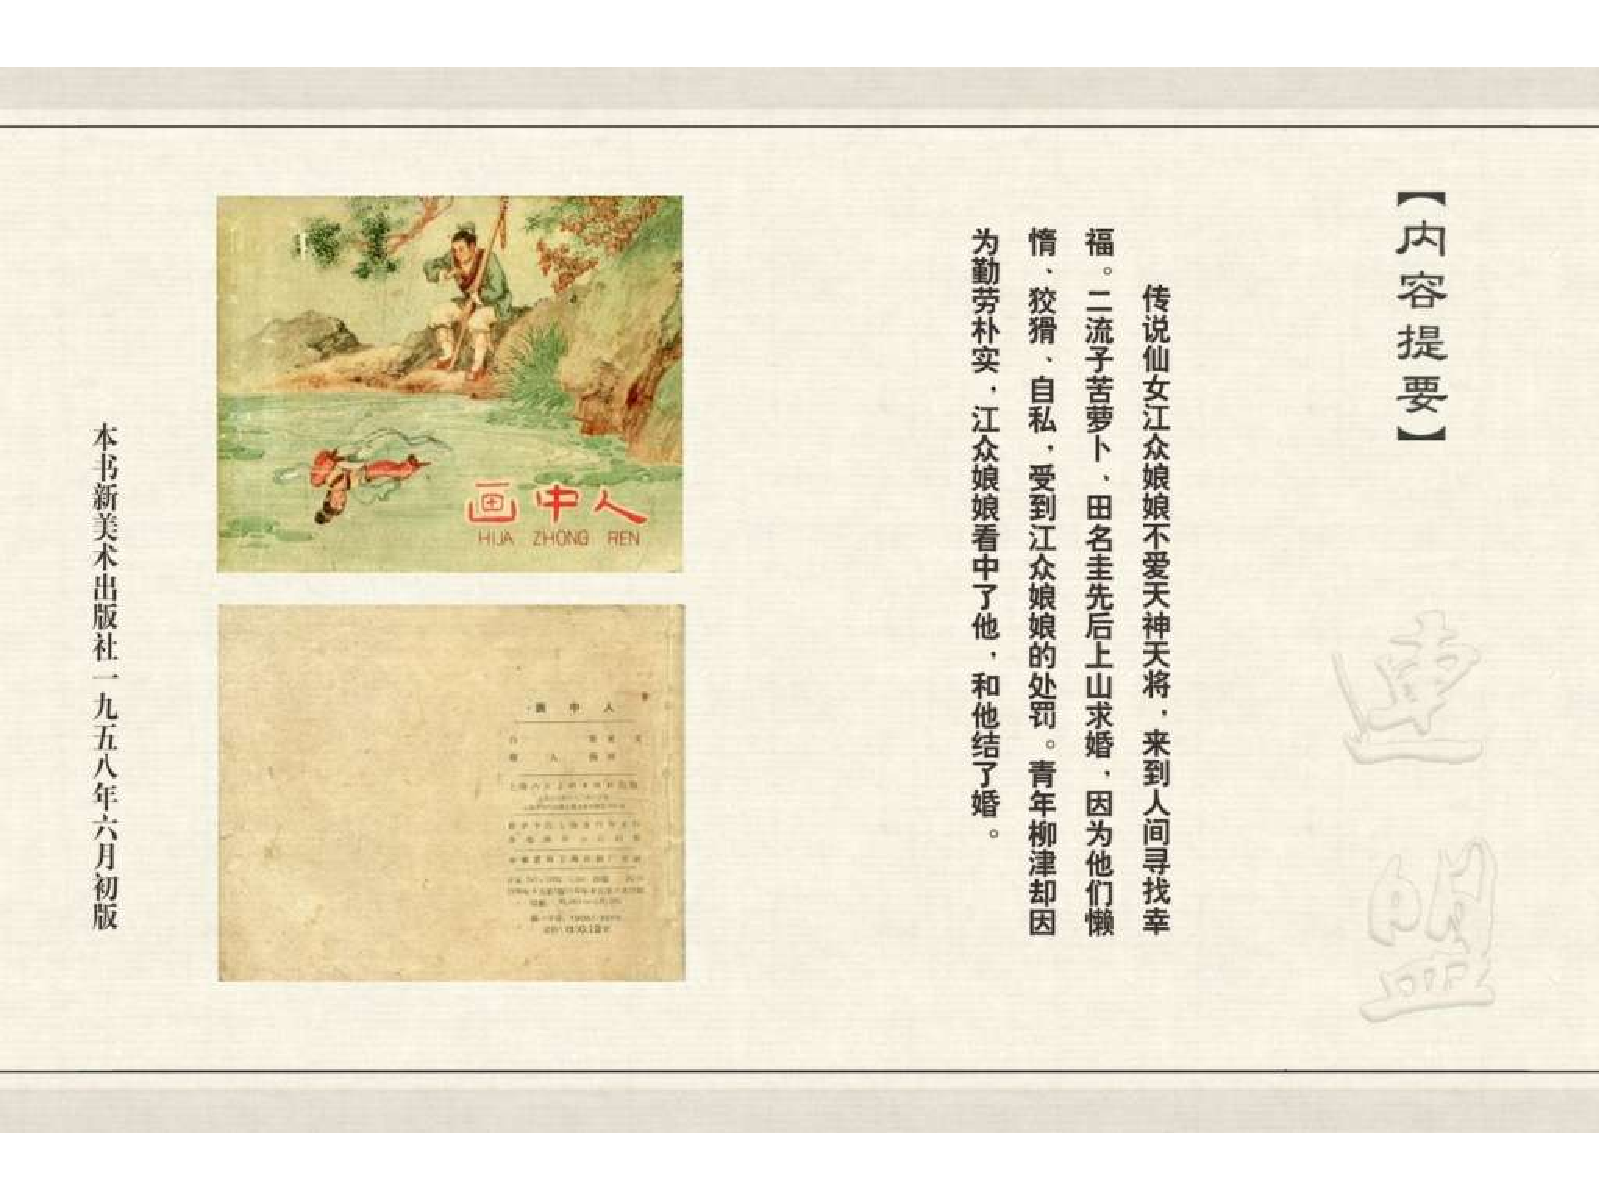 【内容提要】
传说仙女江众娘娘不爱天神天将，来到人间寻找幸
福。二流子苦萝卜、田名圭先后上山求婚，因为他们懒
惰、狡猾、自私，受到江众娘娘的处罚。青年柳津却因
为勤劳朴实，江众娘娘看中了他，和他结了婚。
连盟
画中人
HUA ZHONG REN
画中人
本书新美术出版社一九五八年六月初版